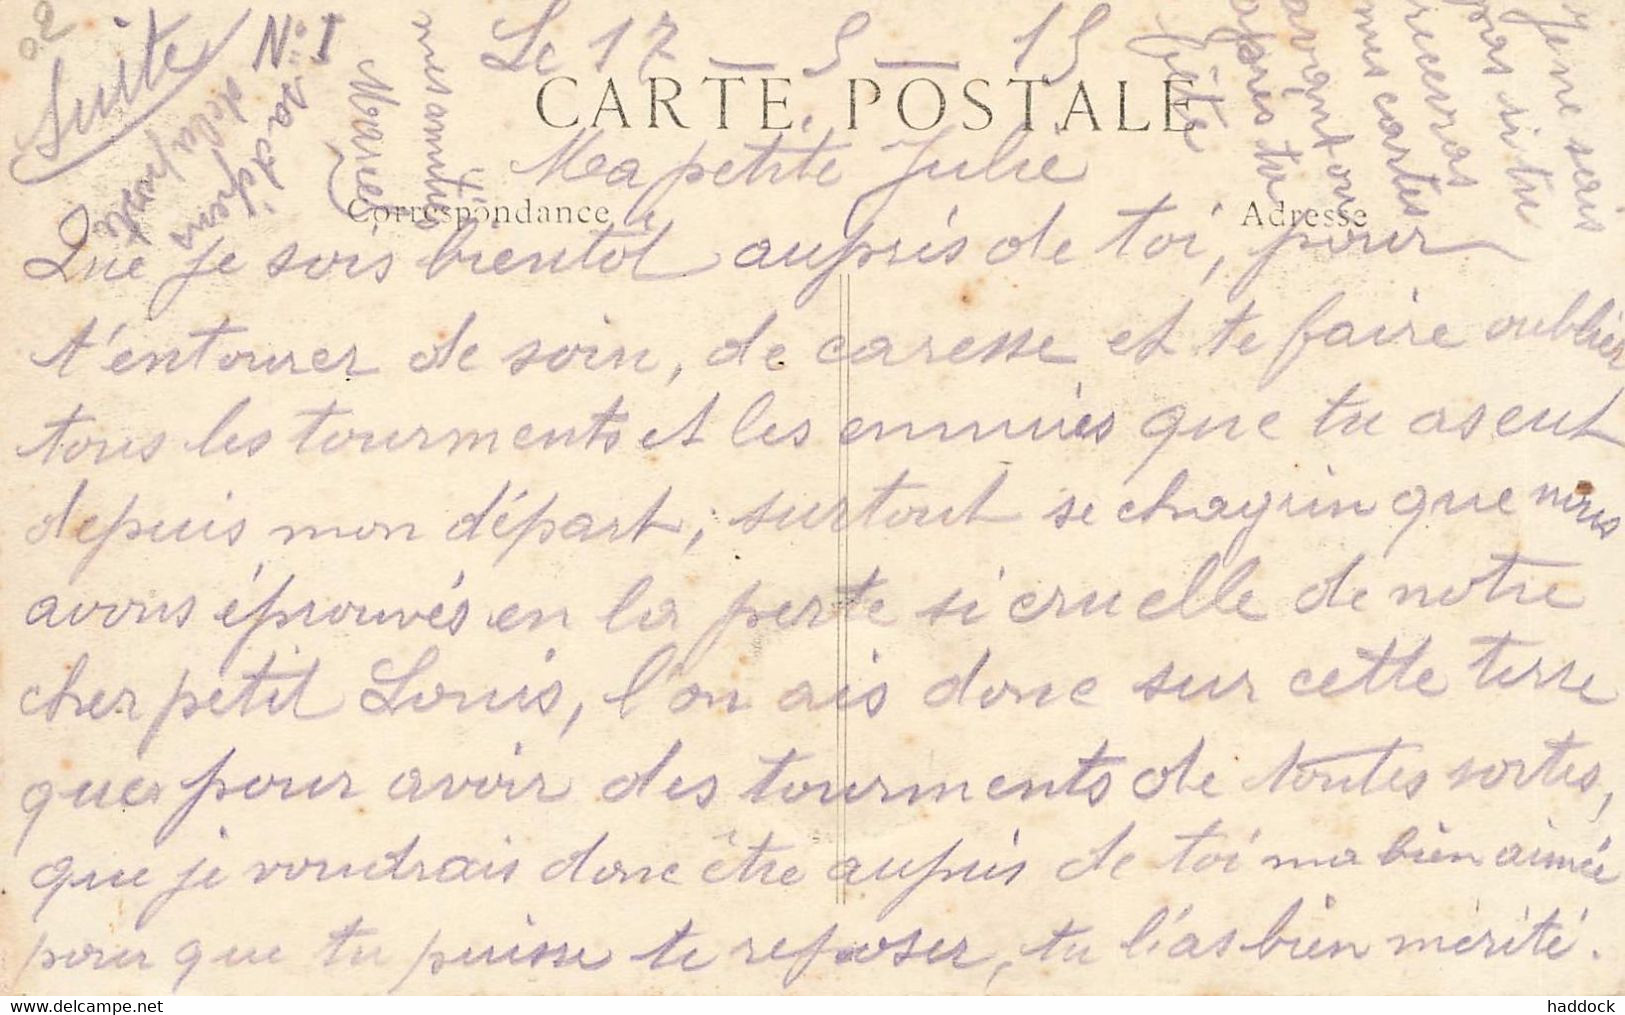 Suite N° I
Le 17 - 5 - 15
CARTE POSTALE
Ma petite Julie
Correspondance
Adresse
Que je sois bientôt auprès de toi, pour
t'entourer de soin, de caresse et te faire oublier
tous les tourments et les ennuies que tu as eut
depuis mon départ, surtout se chagrin que nous
avons éprouvés en la perte si cruelle de notre
cher petit Louis, l'on ais donc sur cette terre
que pour avoir des tourments de toutes sortes,
que je voudrais donc être auprès de toi ma bien aimée
pour que tu puisse te reposer, tu l'as bien mérité.
Je ne sais
pas si tu
recevras
mes cartes
avant ou
après ta
fête
mes amitiés
Marie
de la poste
haddock